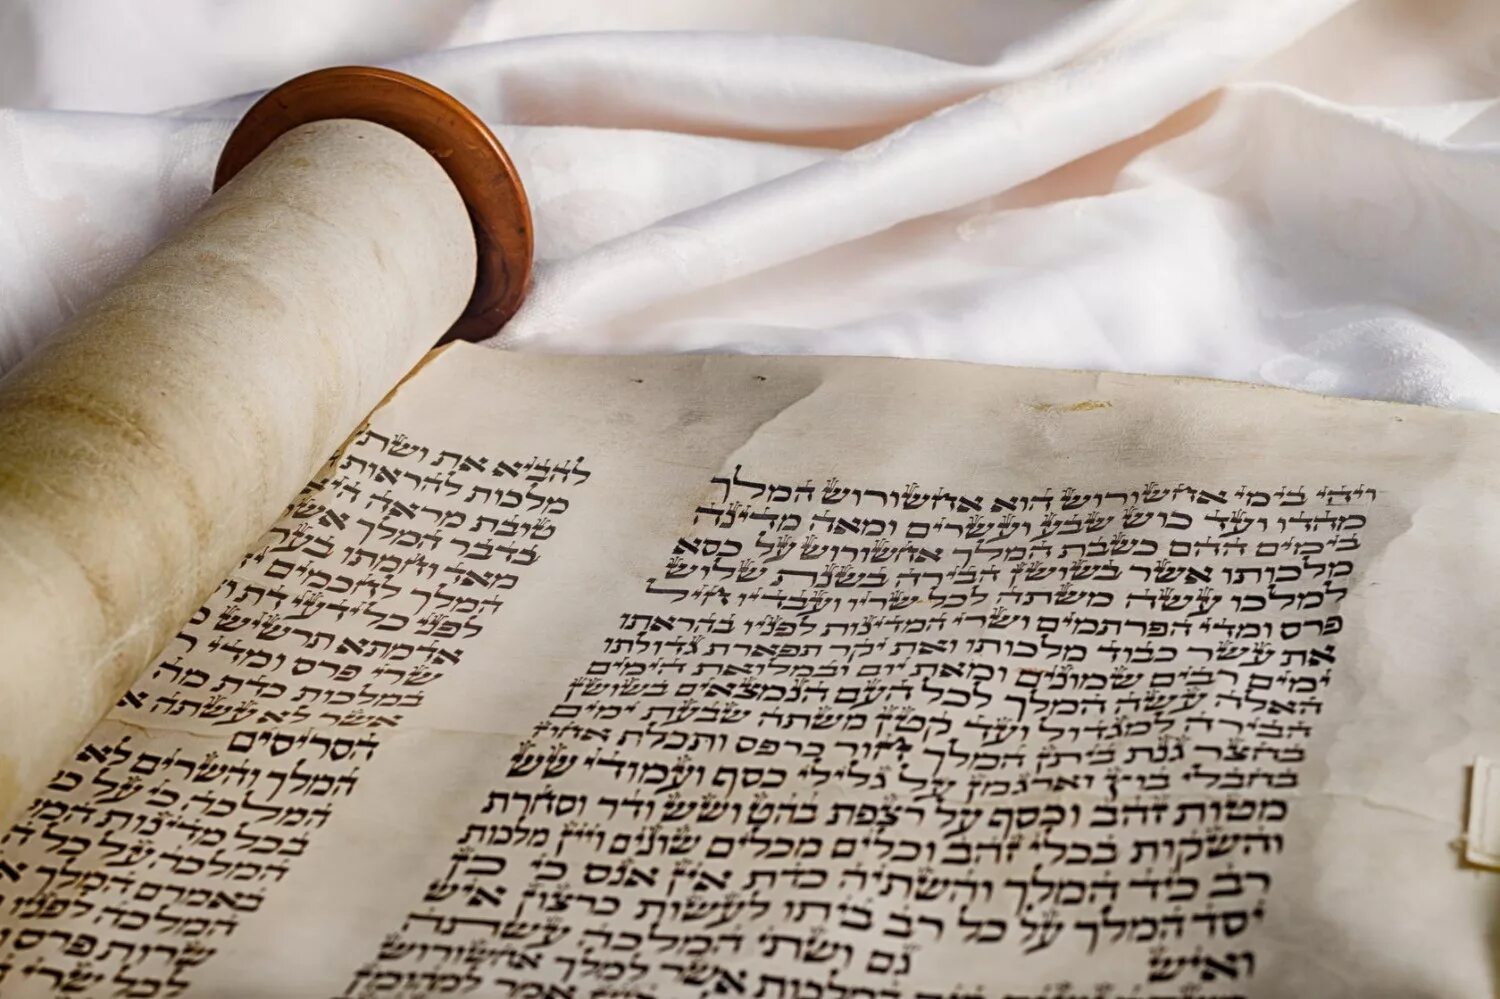 ויהי בימי אחשורוש הוא אחשורוש המלך
מהדו ועד כוש שבע ועשרים ומאה מדינה
בימים ההם כשבת המלך אחשורוש על כסא
מלכותו אשר בשושן הבירה בשנת שלוש
למלכו עשה משתה לכל שריו ועבדיו חיל
פרס ומדי הפרתמים ושרי המדינות לפניו בהראתו
את עשר כבוד מלכותו ואת יקר תפארת גדולתו
ימים רבים שמונים ומאת יום ובמלואת הימים
האלה עשה המלך לכל העם הנמצאים בשושן
הבירה למגדול ועד קטן משתה שבעת ימים
בחצר גנת ביתן המלך חור כרפס ותכלת אחוז
בחבלי בוץ וארגמן על גלילי כסף ועמודי שש
מטות זהב וכסף על רצפת בהט ושש ודר וסחרת
והשקות בכלי זהב וכלים מכלים שונים ויין מלכות
רב כיד המלך והשתיה כדת אין אנס כי כן
יסד המלך על כל רב ביתו לעשות כרצון איש
ואיש גם ושתי המלכה עשתה
המלכות אשר למלך אחשורוש
אמר למהומן
להביא את ושתי
מלכות להראות
טובת מראה היא
בדבר המלך אשר
מאד וחמתו בערה
המלך לחכמים
לפני כל ידעי דת ו
אדמתא תרשיש
שרי פרס ומדי ר
במלכות כדת מה
אשר לא עשתה א
הסריסים
המלך והשרים לא
המלכה כי על כ
בכל מדינות המ
המלכה על כל ה
באמרם המלך א
המלכה לפניו
שרות פרס ו
לכל שרי